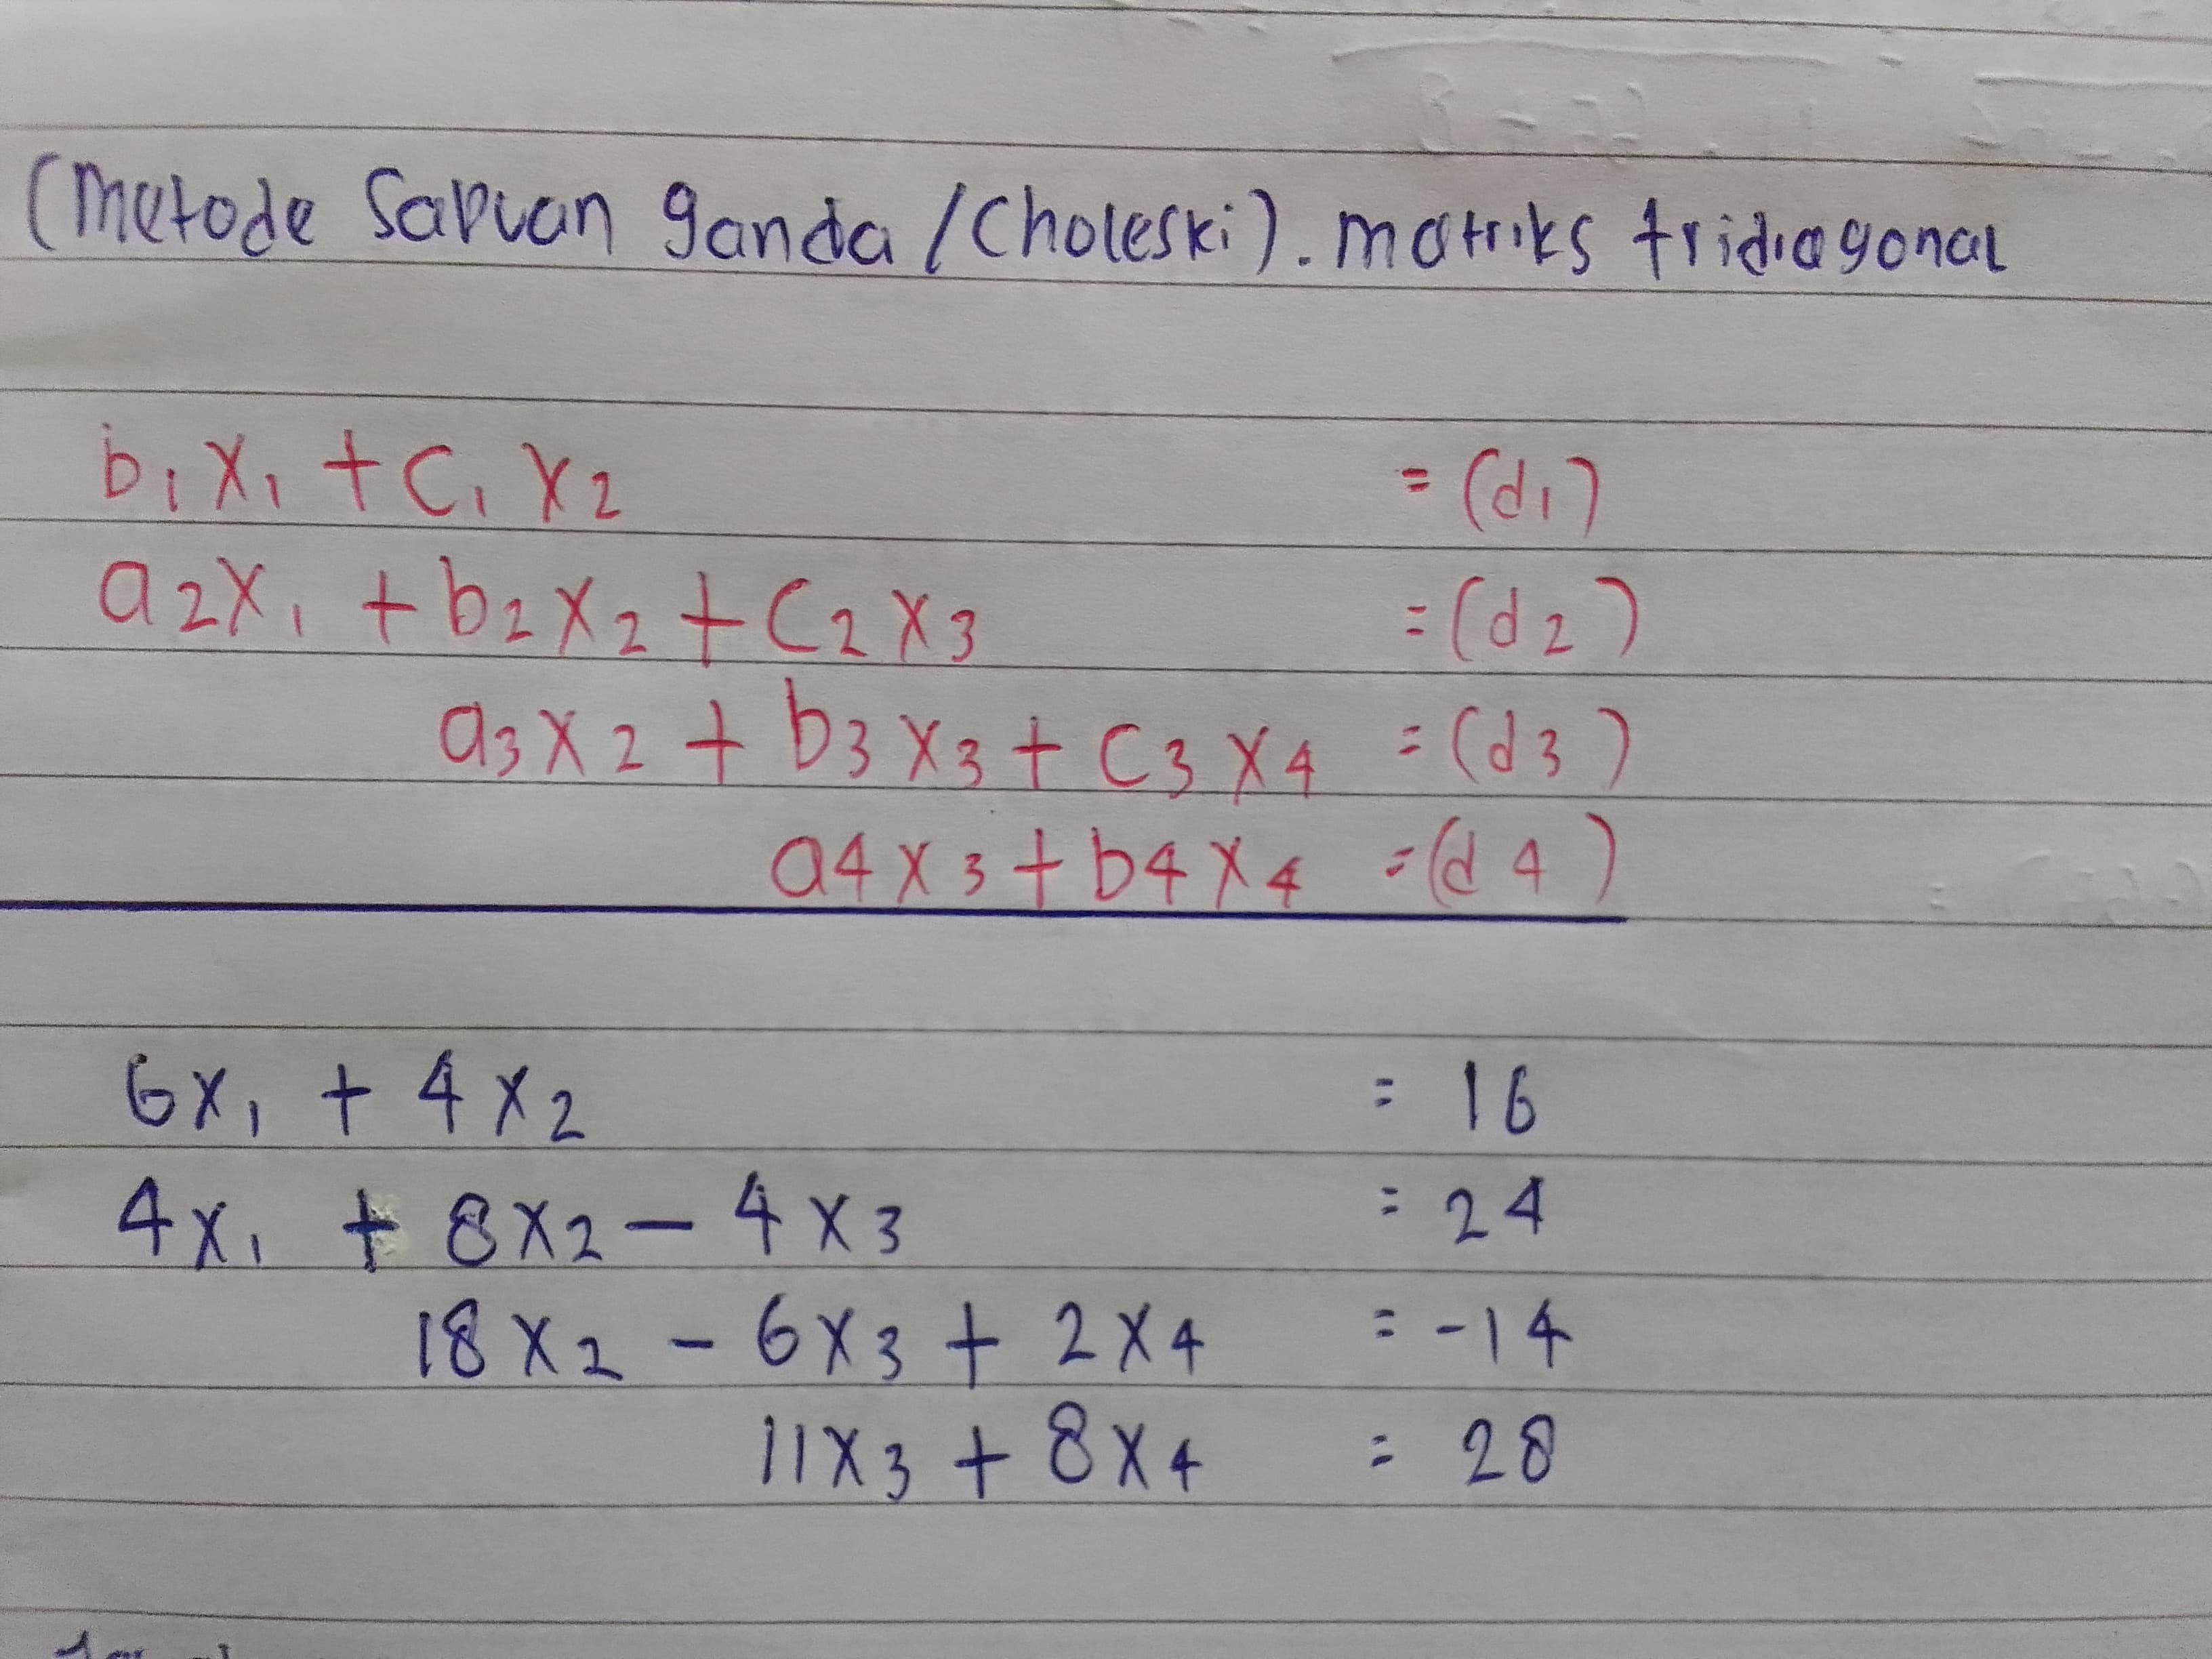 (Metode Sapuan ganda / Choleski). matriks tridiagonal
b₁x₁ + c₁x₂ = (d₁)
a₂x₁ + b₂x₂ + c₂x₃ = (d₂)
a₃x₂ + b₃x₃ + c₃x₄ = (d₃)
a₄x₃ + b₄x₄ = (d₄)
6x₁ + 4x₂ = 16
4x₁ + 8x₂ - 4x₃ = 24
18x₂ - 6x₃ + 2x₄ = -14
11x₃ + 8x₄ = 28